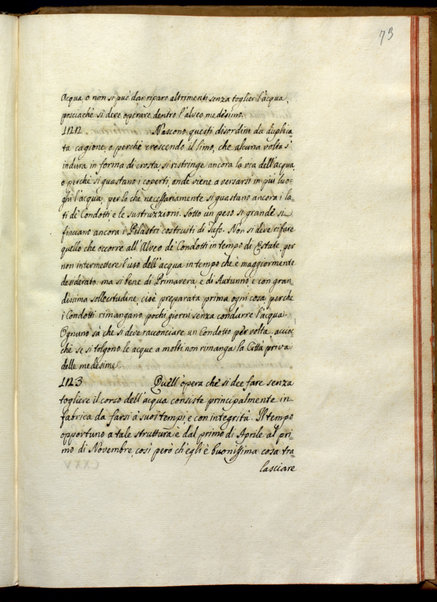 73
Acqua, o non si può dar riparo altrimenti senza toglier l'acqua,
poiciachè si dève operare dentro l'alveo medesimo.
1122. Nascono questi disordini da duplica
ta cagione, o perchè crescendo il limo, che alcuna volta s'
indura in forma di crosta si ristringe ancora la via dell'acqua,
o perchè si guastano i coperti, onde viene a versarsi in più luo-
ghi l'acqua, per lo chè necessariamente si guastano ancora i la-
ti de Condotti e le sustruzzioni. Sotto un peso sì grande si
fiaccano ancora i Pilastri costruiti di Tufo. Non si dève rifare
quello che occorre all'Alveo de Condotti in tempo di Estate per
non intermettere l'uso dell'acqua in tempo che è maggiormente
desiderato, ma sì bene di Primavera, e di Autunno e con gran-
dissima sollecitudine, cioè preparata prima ogni cosa perchè
i Condotti rimangano pochi giorni senza condurre l'acqua.
Ognano sà che si deve racconciare un Condotto per volta, accio-
chè se si tolgono le acque a molti non rimanga la Città priva
delle medesime.
1123. Quell'opera che si dee fare senza
togliere il corso dell'acqua consiste principalmente in
fabrica da farsi à suoi tempi e con integrità. Il tempo
opportuno a tale struttura è dal primo di Aprile al pri
mo di Novembre così però ch'egli è buonissima cosa tra
lasciare